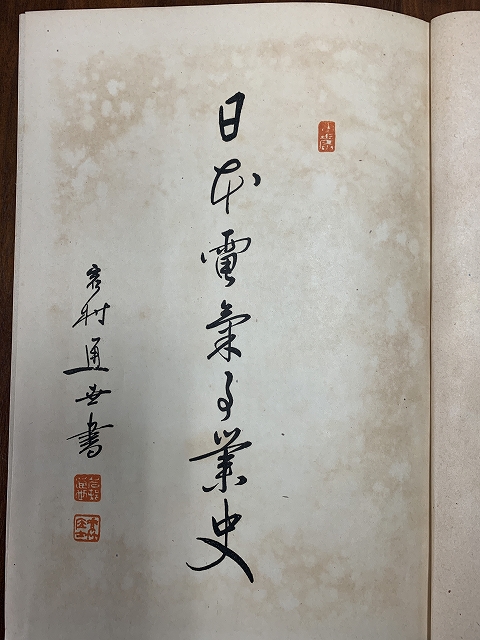 日本電氣事業史
吉村通世書